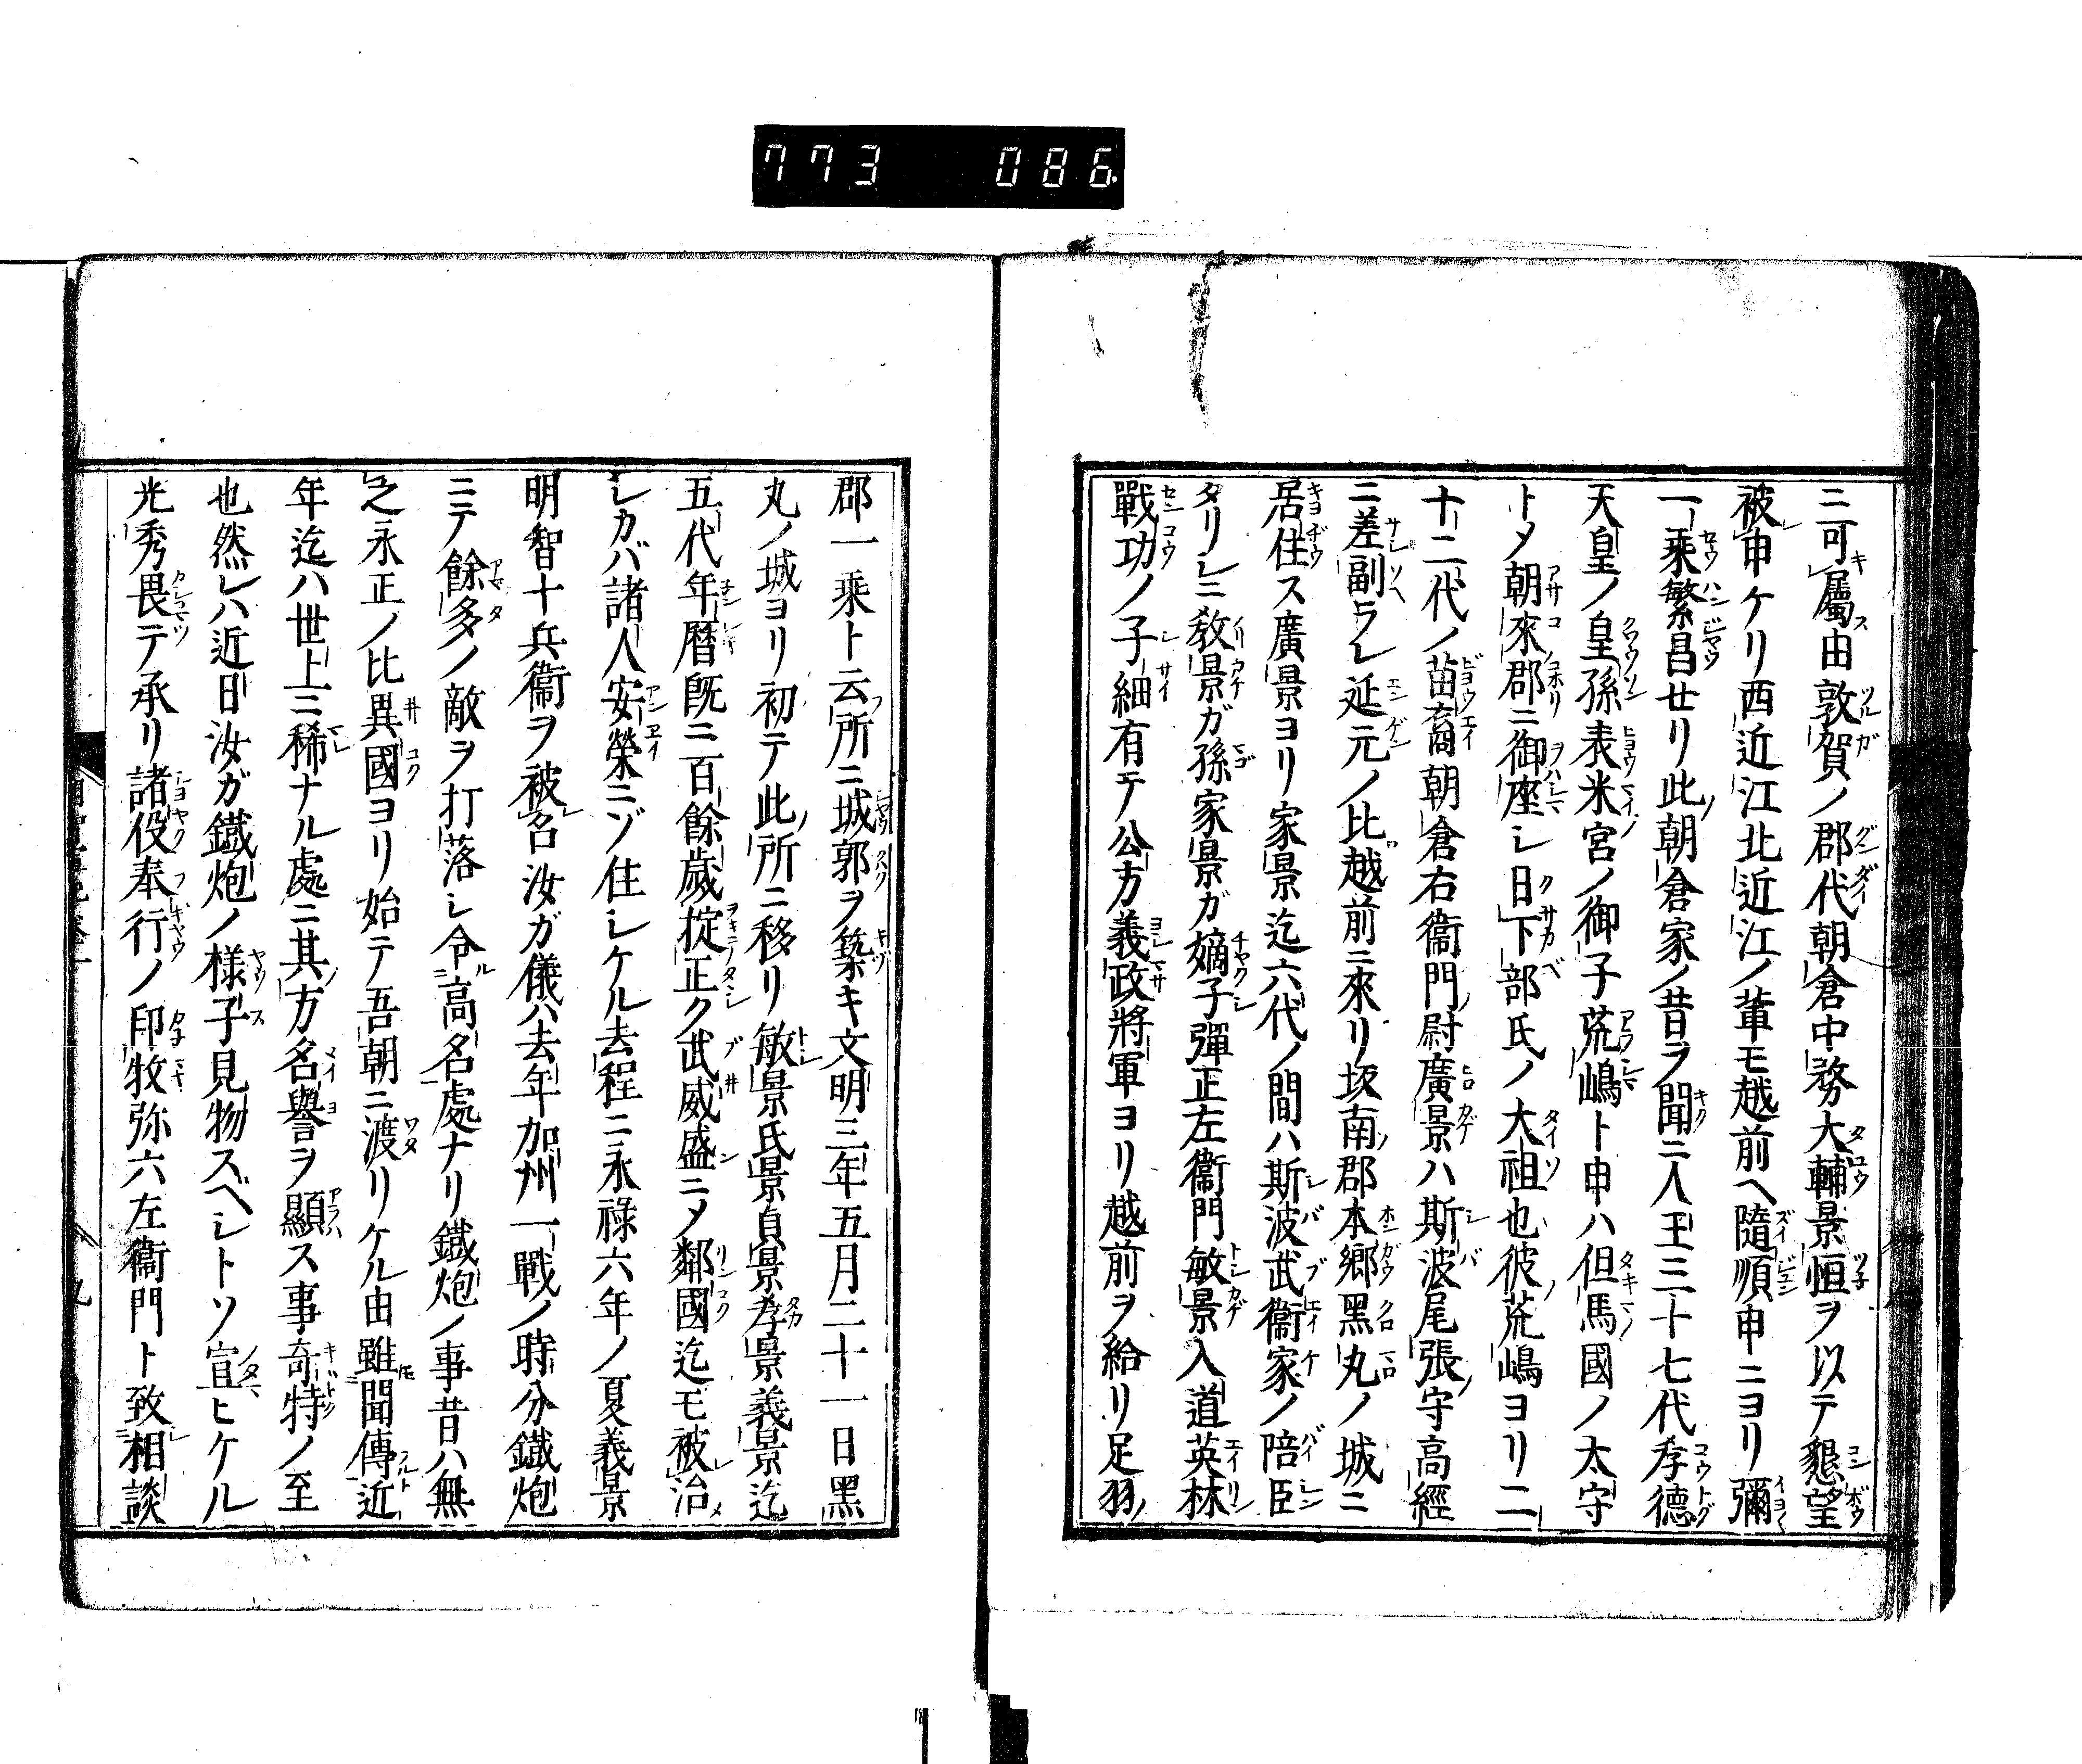 773 086
ニ可屬由敦賀ノ郡代朝倉中務大輔景恒ヲ以テ懇望
被申ケリ西近江北近江ノ輩モ越前ヘ隨順申ニヨリ彌
一乘繁昌せリ此朝倉家ノ昔ヲ聞ニ人王三十七代孝德
天皇ノ皇孫表米宮ノ御子荒嶋ト申ハ但馬國ノ太守
トメ朝來郡ニ御座シ日下部氏ノ大祖也彼荒嶋ヨリ二
十二代ノ苗裔朝倉右衞門尉廣景ハ斯波尾張守高經
ニ差副ラレ延元ノ比越前ニ來リ坂南郡本鄉黑丸ノ城ニ
居住ス廣景ヨリ家景迄六代ノ間ハ斯波武衞家ノ陪臣
タリシニ敎景ガ孫家景ガ嫡子彈正左衞門敏景入道英林
戰功ノ子細有テ公方義政將軍ヨリ越前ヲ給リ足羽
郡一乘ト云所ニ城郭ヲ築キ文明三年五月二十一日黑
丸ノ城ヨリ初テ此所ニ移リ敏景氏景貞景孝景義景迄
五代年曆既ニ百餘歲掟正ク武威盛ニメ鄰國迄モ被治
シカバ諸人安榮ニゾ住シケル去程ニ永祿六年ノ夏義景
明智十兵衞ヲ被召汝ガ儀ハ去年加州一戰ノ時分鐵炮
ニテ餘多ノ敵ヲ打落シ令高名處ナリ鐵炮ノ事昔ハ無
之永正ノ比異國ヨリ始テ吾朝ニ渡リケル由雖聞傳近
年迄ハ世上ニ稀ナル處ニ其方名譽ヲ顯ス事奇特ノ至
也然レハ近日汝ガ鐵炮ノ樣子見物スベシトソ宣ヒケル
光秀畏テ承リ諸役奉行ノ印牧弥六左衞門ト致相談